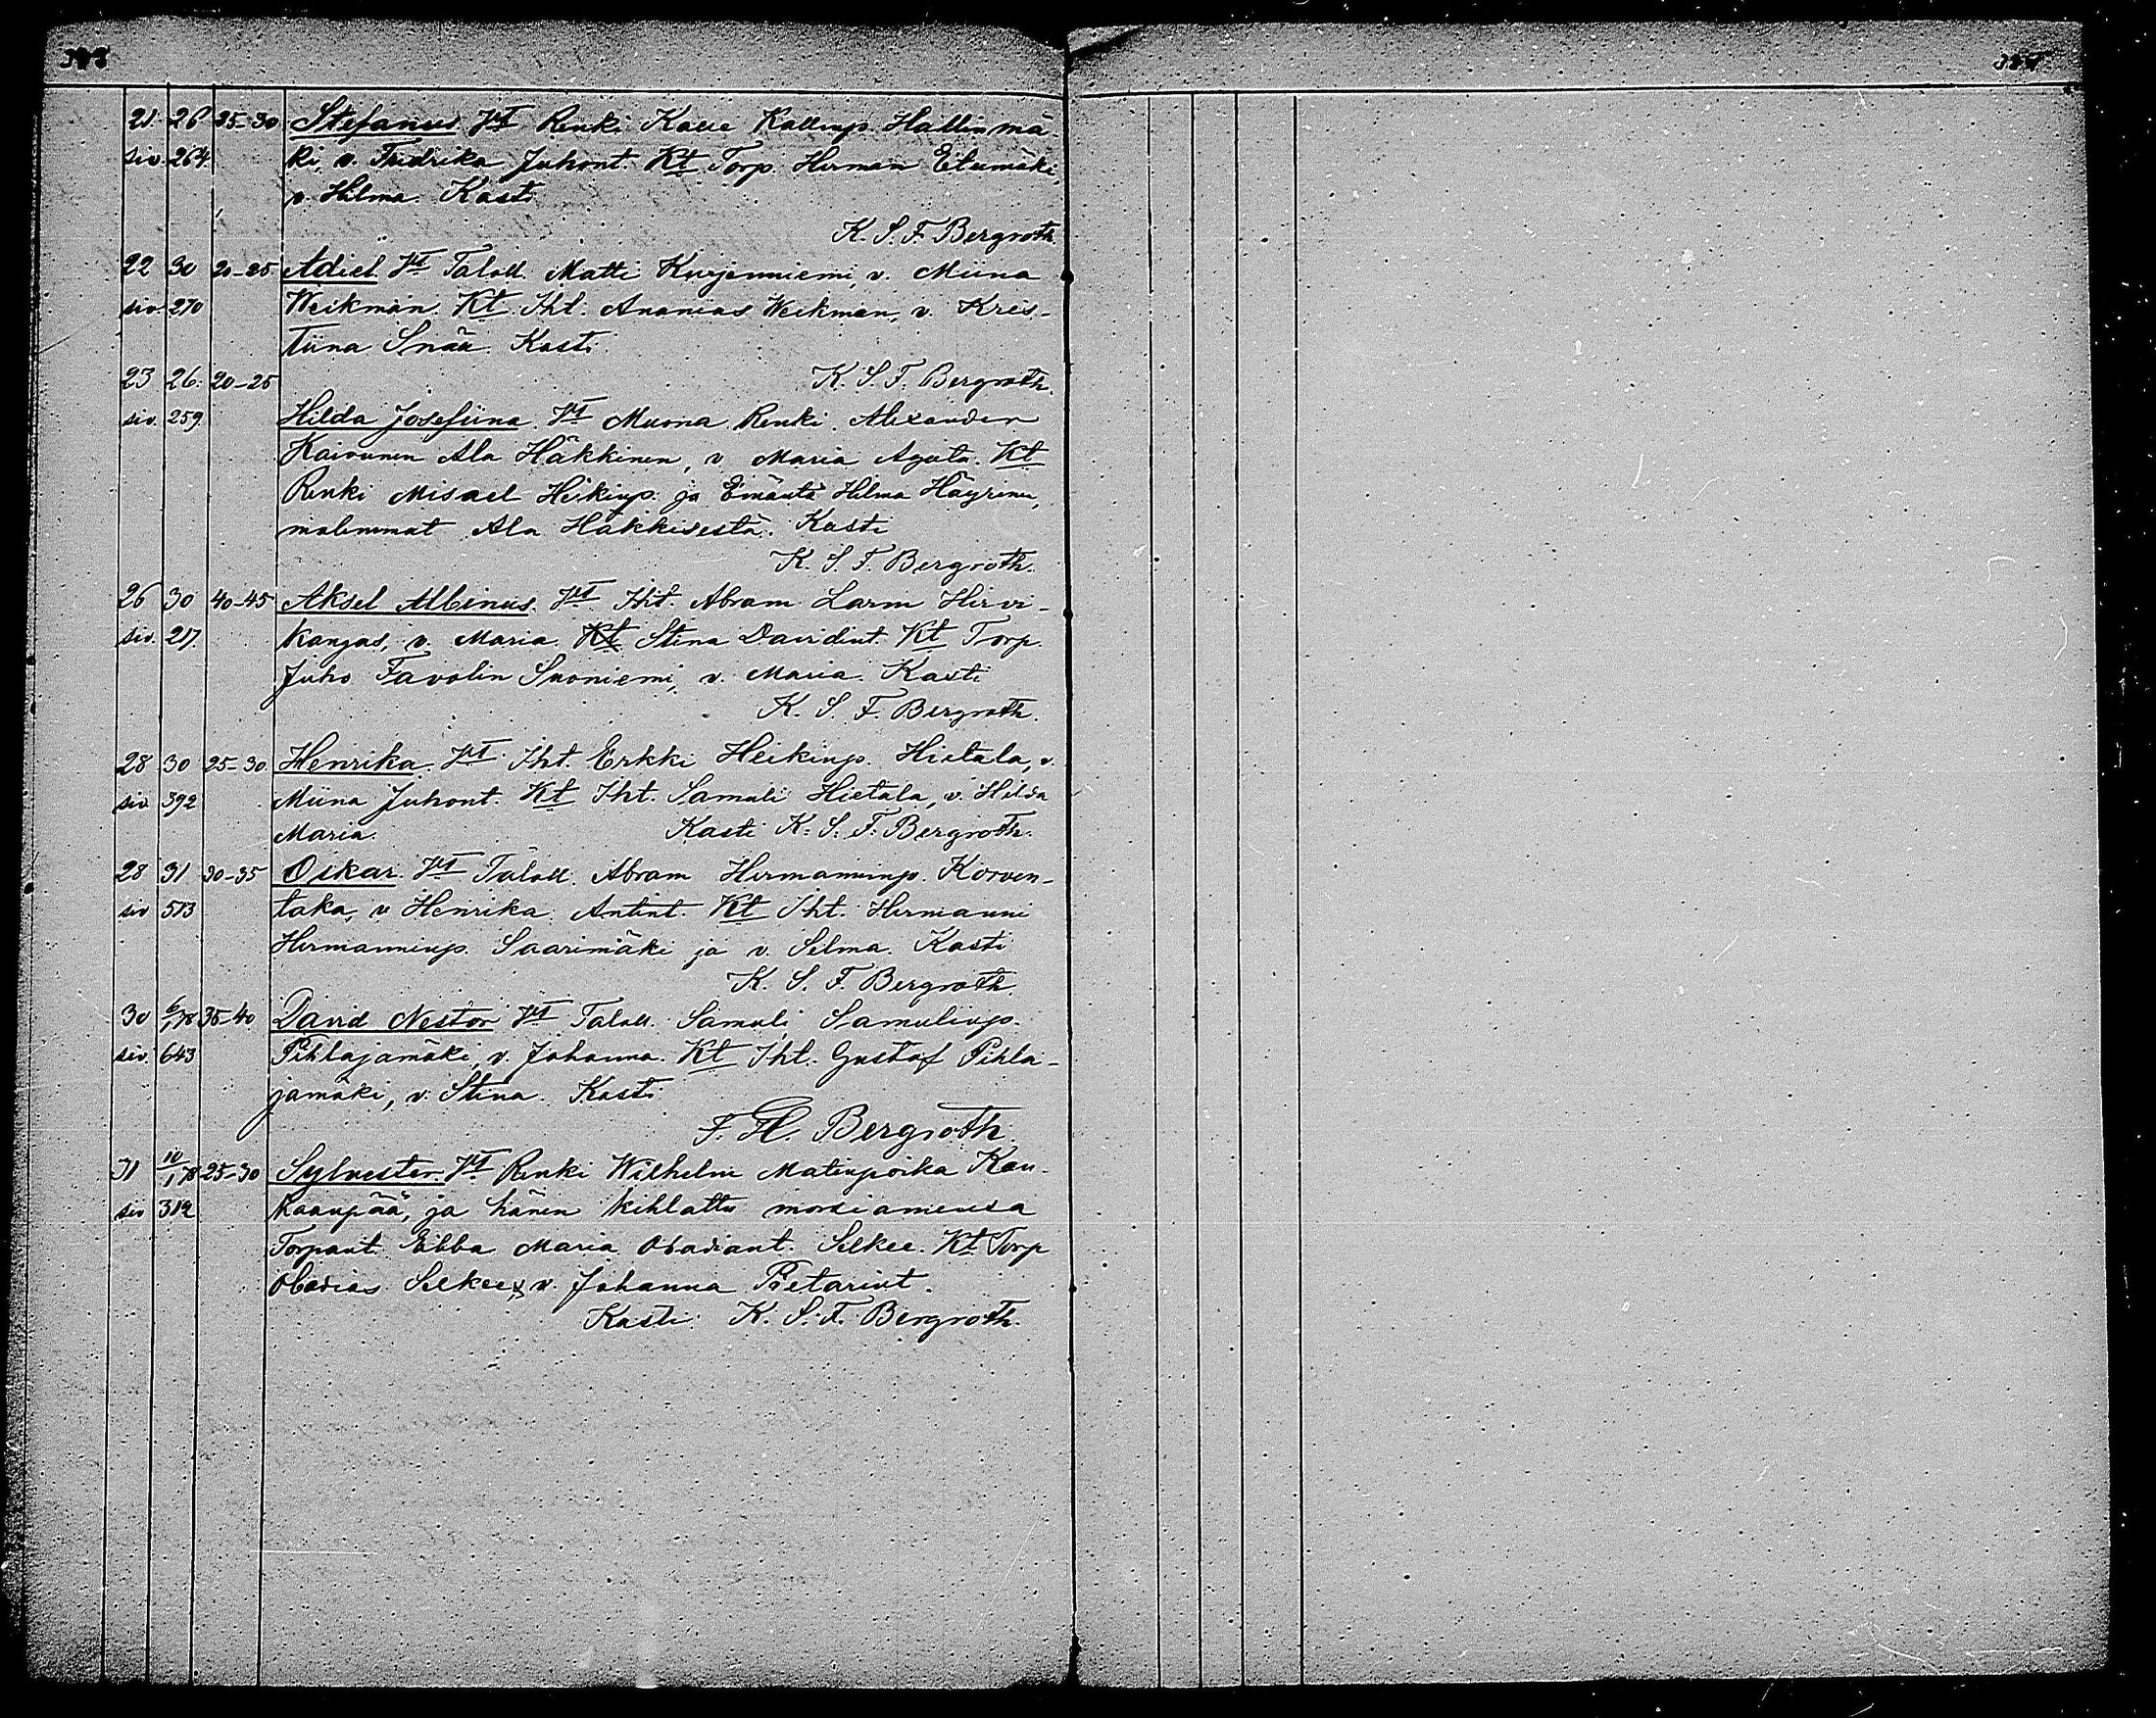 21. 26 25-30 Stefanus. Vt Renki Kalle Kallenp. Hallinmä-
siv. 264. ki, v. Fredrika Juhont. Kt Torp. Herman Etumäki,
v. Hilma. Kasti
K. S. F. Bergroth.
22 30 20-25 Adiel. Vt Taloll. Matti Kurjenniemi, v. Miina
siv. 270 Weikman. Kt. Iht. Ananias Weikman, v. Kris-
tiina Snåu. Kasti
23 26. 20-25 K. S. F. Bergroth.
siv. 259. Hilda Josefiina. Vt Muona Renki Alexander
Kaivonen Ala Häkkinen, v. Maria Agata. Kt
Renki Misael Heikinp. ja Emäntä Hilma Häyrinen,
molemmat Ala Häkkisestä. Kasti
K. S. F. Bergroth.
26 30 40-45 Aksel Albinus. Vt Iht. Abram Larm Hirvi-
siv. 217. kangas, v. Maria Stina Davidint. Kt Torp.
Juho Favolin Suoniemi, v. Maria. Kasti
K. S. F. Bergroth.
28 30 25-30. Henrika. Vt Iht. Erkki Heikinp. Hietala, v.
siv. 392 Miina Juhont. Kt Iht. Samuli Hietala, v. Hilda
Maria. Kasti K. S. F. Bergroth.
28 31 30-35 Oskar. Vt Taloll. Abram Hermanninp. Korven-
siv 513 taka, v Henrika Antint. Kt Iht. Hermanni
Hermanninp. Saarimäki ja v. Selma. Kasti
K. S. F. Bergroth.
30 6/1 78 35-40 David Nestor Vt Taloll. Samuli Samulinp.
siv. 643 Pihlajamäki, v. Johanna. Kt Iht. Gustaf Pihla-
jamäki, v. Stina. Kasti
F. H. Bergroth.
31 10/1 78 25-30 Sylvester. Vt Renki Wilhelm Matinpoika Kan-
siv 312 kaanpää, ja hänen kihlattu morsiamensa
Torpant. Ebba Maria Obadiant. Selkee. Kt Torp
Obadias Selkee, v. Johanna Pietarint.
Kasti K. S. F. Bergroth.